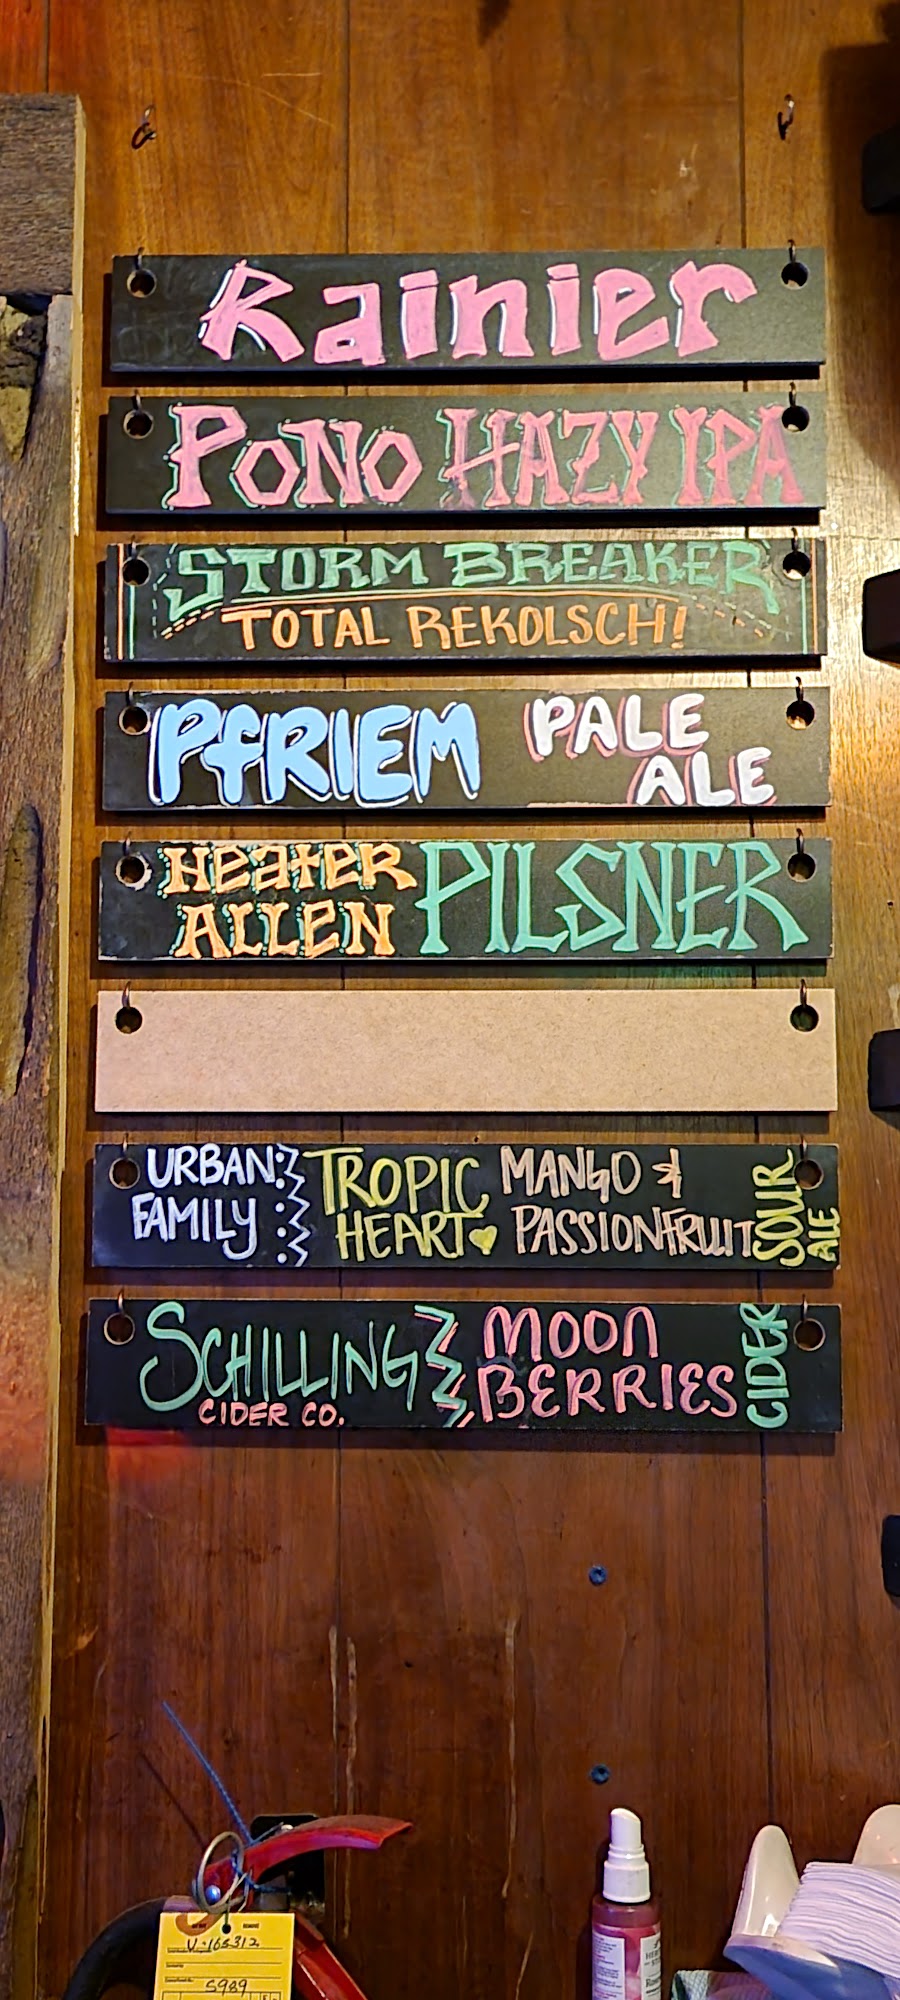 Rainier
PONO HAZY IPA
STORM BREAKER
TOTAL REKOLSCH!
PfRIEM PALE
ALE
HEATER
ALLEN PILSNER
URBAN TROPIC MANGO &
FAMILY HEART PASSIONFRUIT
SOUR
ALE
SCHILLING MOON
CIDER CO. BERRIES
CIDER
V-165312
5989